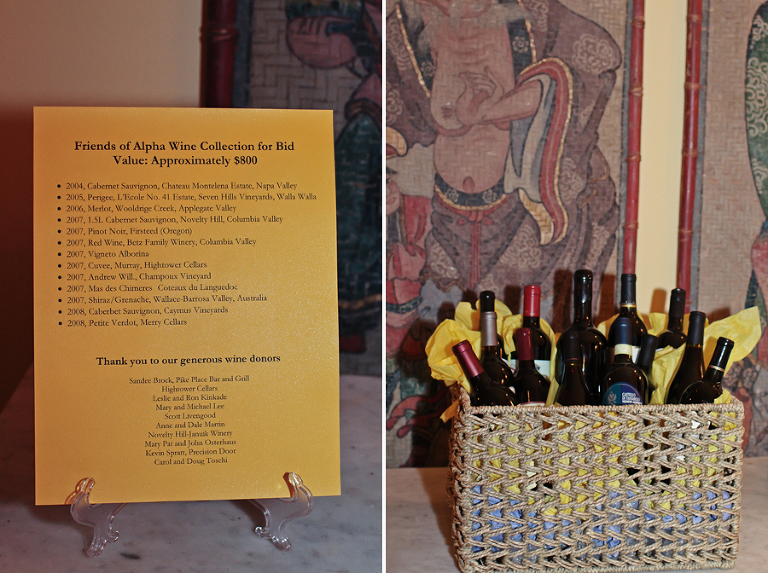 Friends of Alpha Wine Collection for Bid
Value: Approximately $800
• 2004, Cabernet Sauvignon, Chateau Montelena Estate, Napa Valley
• 2005, Perigee, L'Ecole No. 41 Estate, Seven Hills Vineyards, Walla Walla
• 2006, Merlot, Wooldrige Creek, Applegate Valley
• 2007, 1.5L Cabernet Sauvignon, Novelty Hill, Columbia Valley
• 2007, Pinot Noir, Firsteed (Oregon)
• 2007, Red Wine, Betz Family Winery, Columbia Valley
• 2007, Vigneto Alborina
• 2007, Cuvee, Murray, Hightower Cellars
• 2007, Andrew Will., Champoux Vineyard
• 2007, Mas des Chimeres Coteaux du Languedoc
• 2007, Shiraz/Grenache, Wallace-Barrosa Valley, Australia
• 2008, Caberbet Sauvignon, Caymus Vineyards
• 2008, Petite Verdot, Merry Cellars
Thank you to our generous wine donors
Sandee Brock, Pike Place Bar and Grill
Hightower Cellars
Leslie and Ron Kinkade
Mary and Michael Lee
Scott Livengood
Anne and Dale Martin
Novelty Hill-Januik Winery
Mary Pat and John Osterhaus
Kevin Spratt, Precision Door
Carol and Doug Toschi